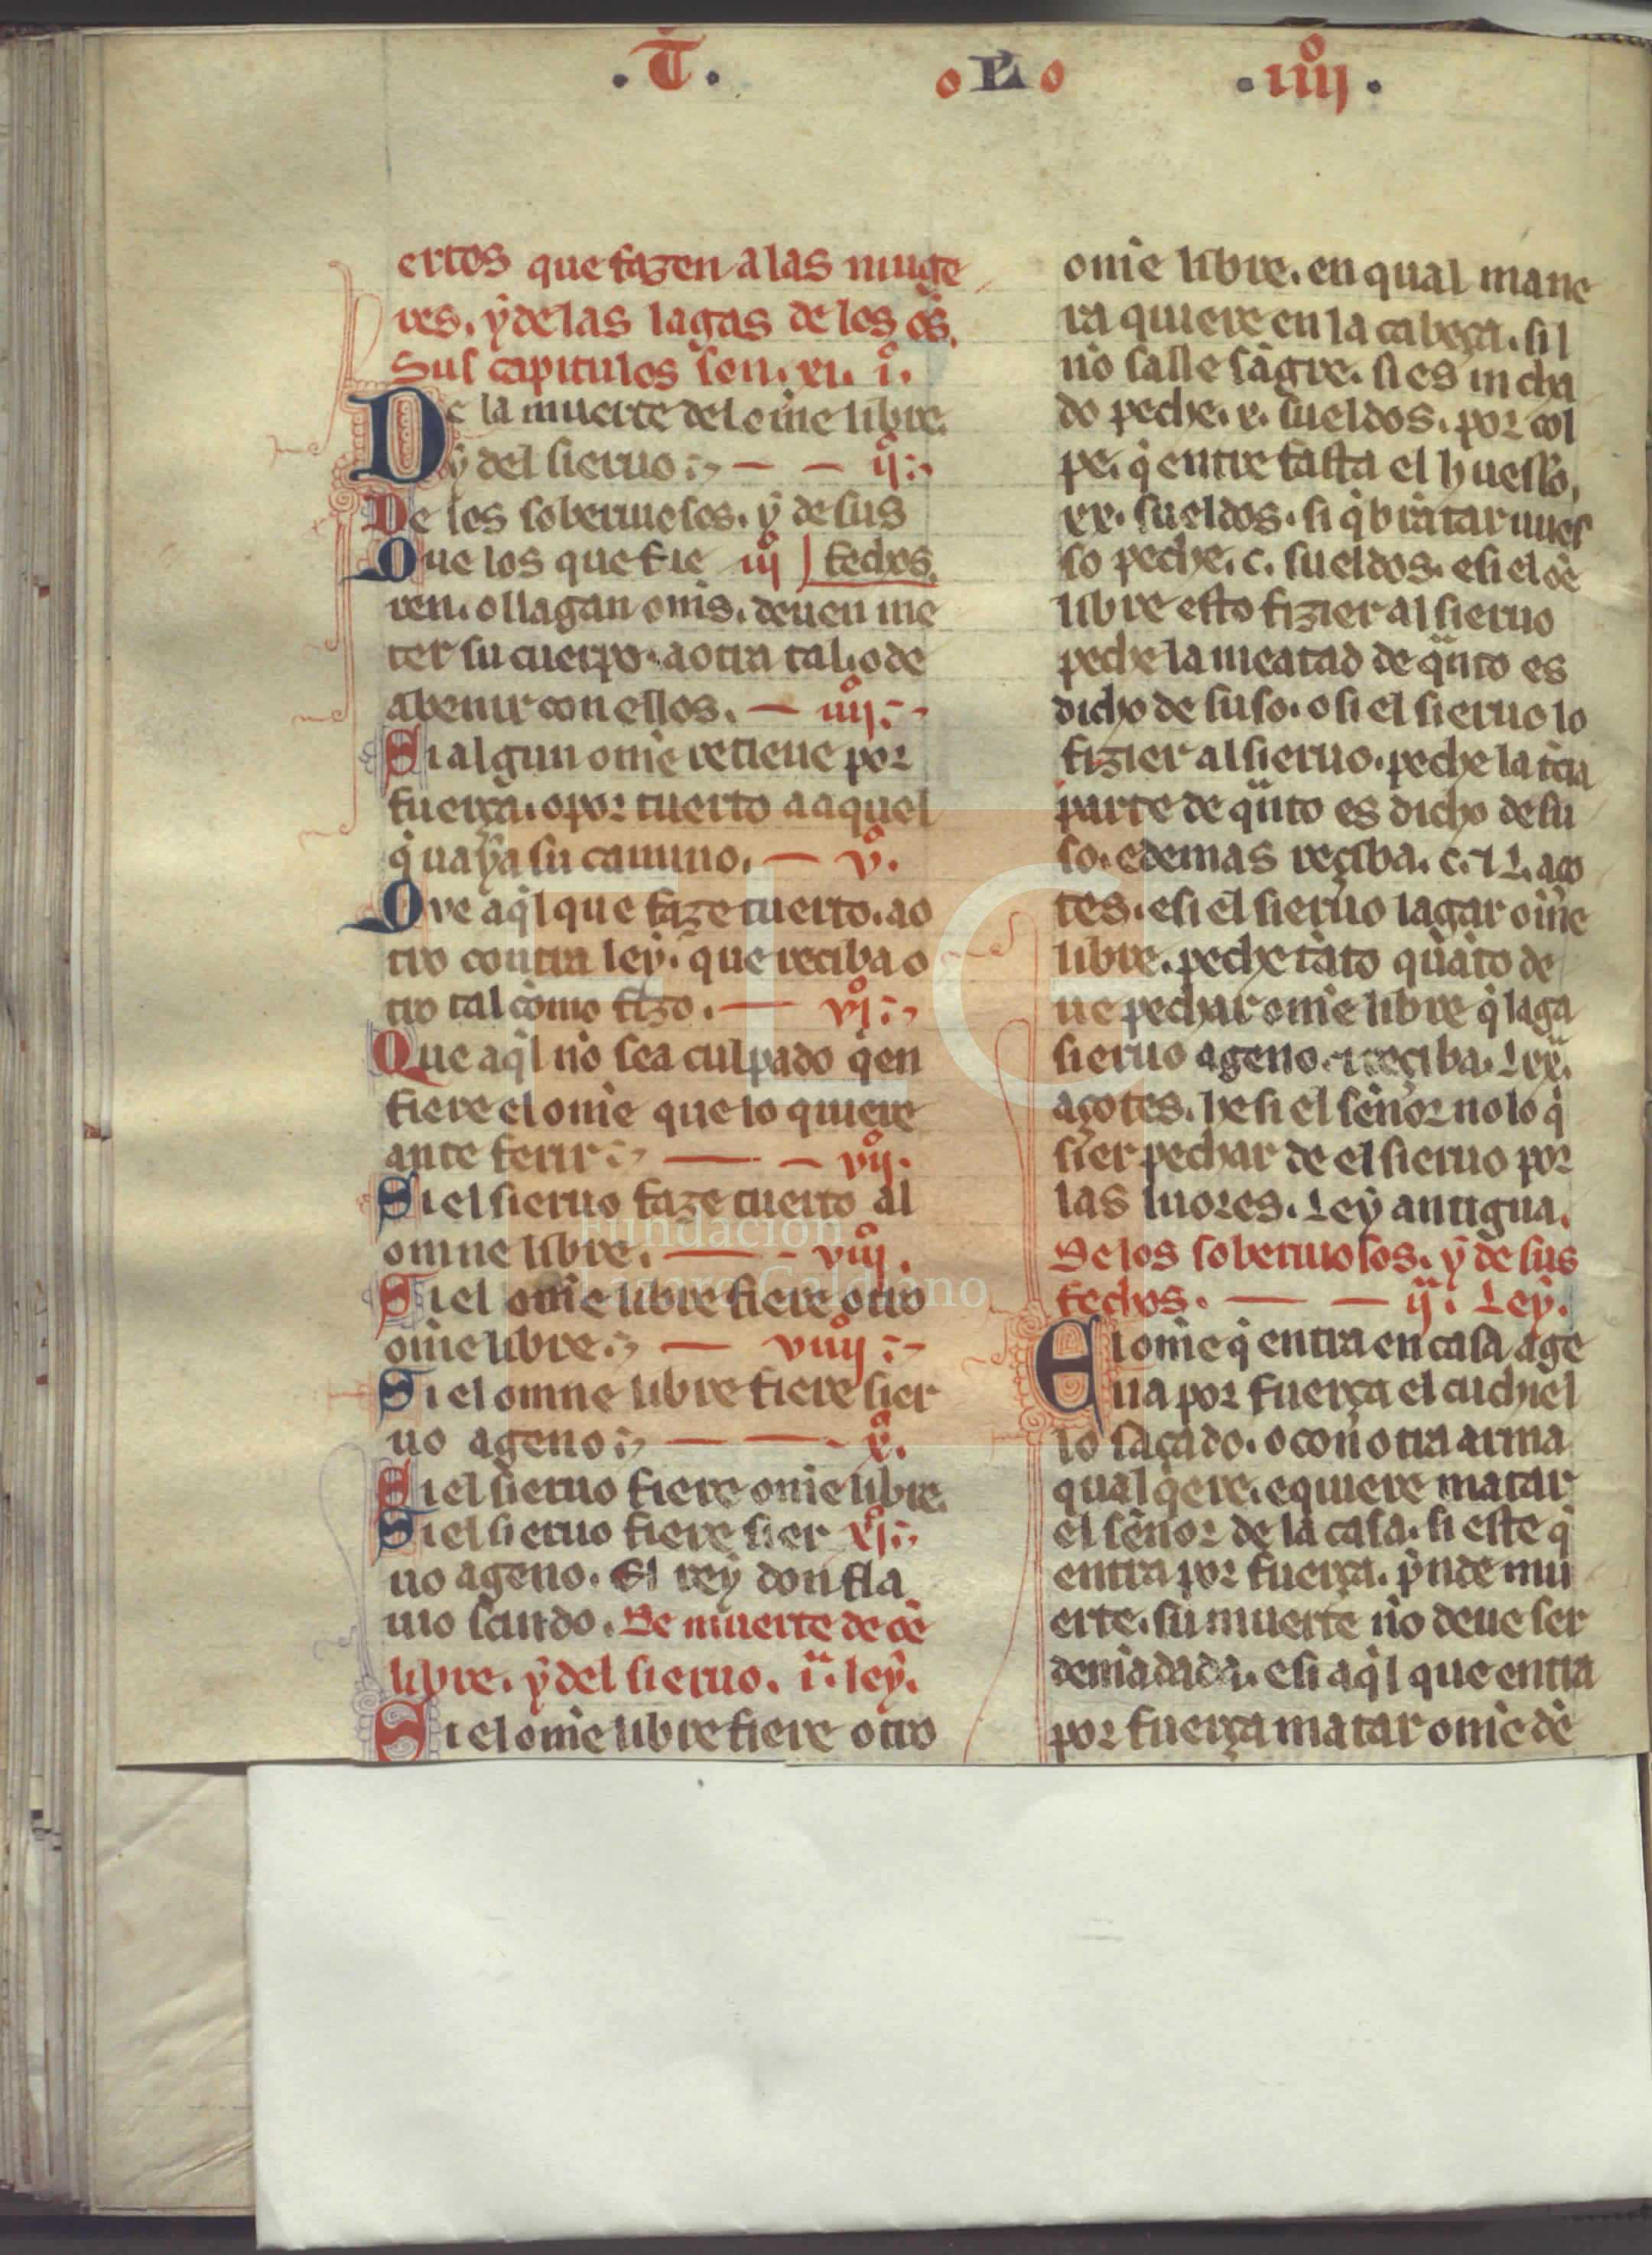 .T̄. o L o .iiijº.
ertos que fazen a las muge
res. ẏ de las lagas de los oș̄.
Sus capitulos son. xi. iº.
De la muerte del om̄e libre.
ẏ del sieruo :, — — ijº:,
De los soberuiosos. ẏ de sus
Que los que fie iijº | fechos.
ren. o llagan om̄s. deuen me
ter su cuerpo. a otra tal. o de
abenir con ellos. — iiijº:-
Si algun om̄e retiene por
fuerça. o por tuerto a aquel
q̇ uaẏa su camino. — vº.
Ove aq̇l que faze tuerto. a o
tro contra leẏ. que reciba o
tro tal cōmo fizo. — vjº:,
Que aq̇l nō sea culpado q̇en
fiere el om̄e que lo quiere
ante ferir :, — — vijº.
Si el sieruo faze tuerto al
omne libre. — - viijº.
Si el om̄e libre fiere otro
om̄e libre :, — viiijº:-
Si el omne libre fiere sier
uo ageno :, — — - xº.
Si el sieruo fiere om̄e libre.
Si el sieruo fiere sier xjº:,
uo ageno. El reẏ don fla
uio scīndo. De muerte de oē
libre. ẏ del sieruo. iª. leẏ.
Si el om̄e libre fiere otro
om̄e libre. en qual mane
ra quiere en la cabeça. sil
nō salle sāgre. si es incha
do peche. v. sueldos. por col
pe. q̇ entre fasta el huesso,
xx. sueldos. si q̇brātar hues
so peche. c. sueldos. e si el oē
libre esto fizier al sieruo
peche la meatad de qᵃnto es
dicho de suso. o si el sieruo lo
fizier al sieruo. peche la t̄cia
parte de qᵃnto es dicho de su
so. e demas reçiba. c. τ L. aço
tes. e si el sieruo lagar om̄e
libre. peche tāto quāto de
ue pechar om̄e libre q̇ laga
sieruo ageno. τ reçiba. Lxxª.
açotes. he si el sēnor no lo q̇
sier pechar de el sieruo por
las liuores. Leẏ antigua.
De los soberuiosos. ẏ de sus
fechos. — — ijª: Leẏ.
El om̄e q̇ entra en casa age
na por fuerça el cuchiel
lo sacado. o con otra arma
qual q̇ere. e quiere matar
el sēnor de la casa. si este q̇
entra por fuerça. p̄nde mu
erte. su muerte nō deue ser
demādada. e si aq̇l que entra
por fuerça matar om̄e dē
Fundación
Lázaro Galdiano
FLG